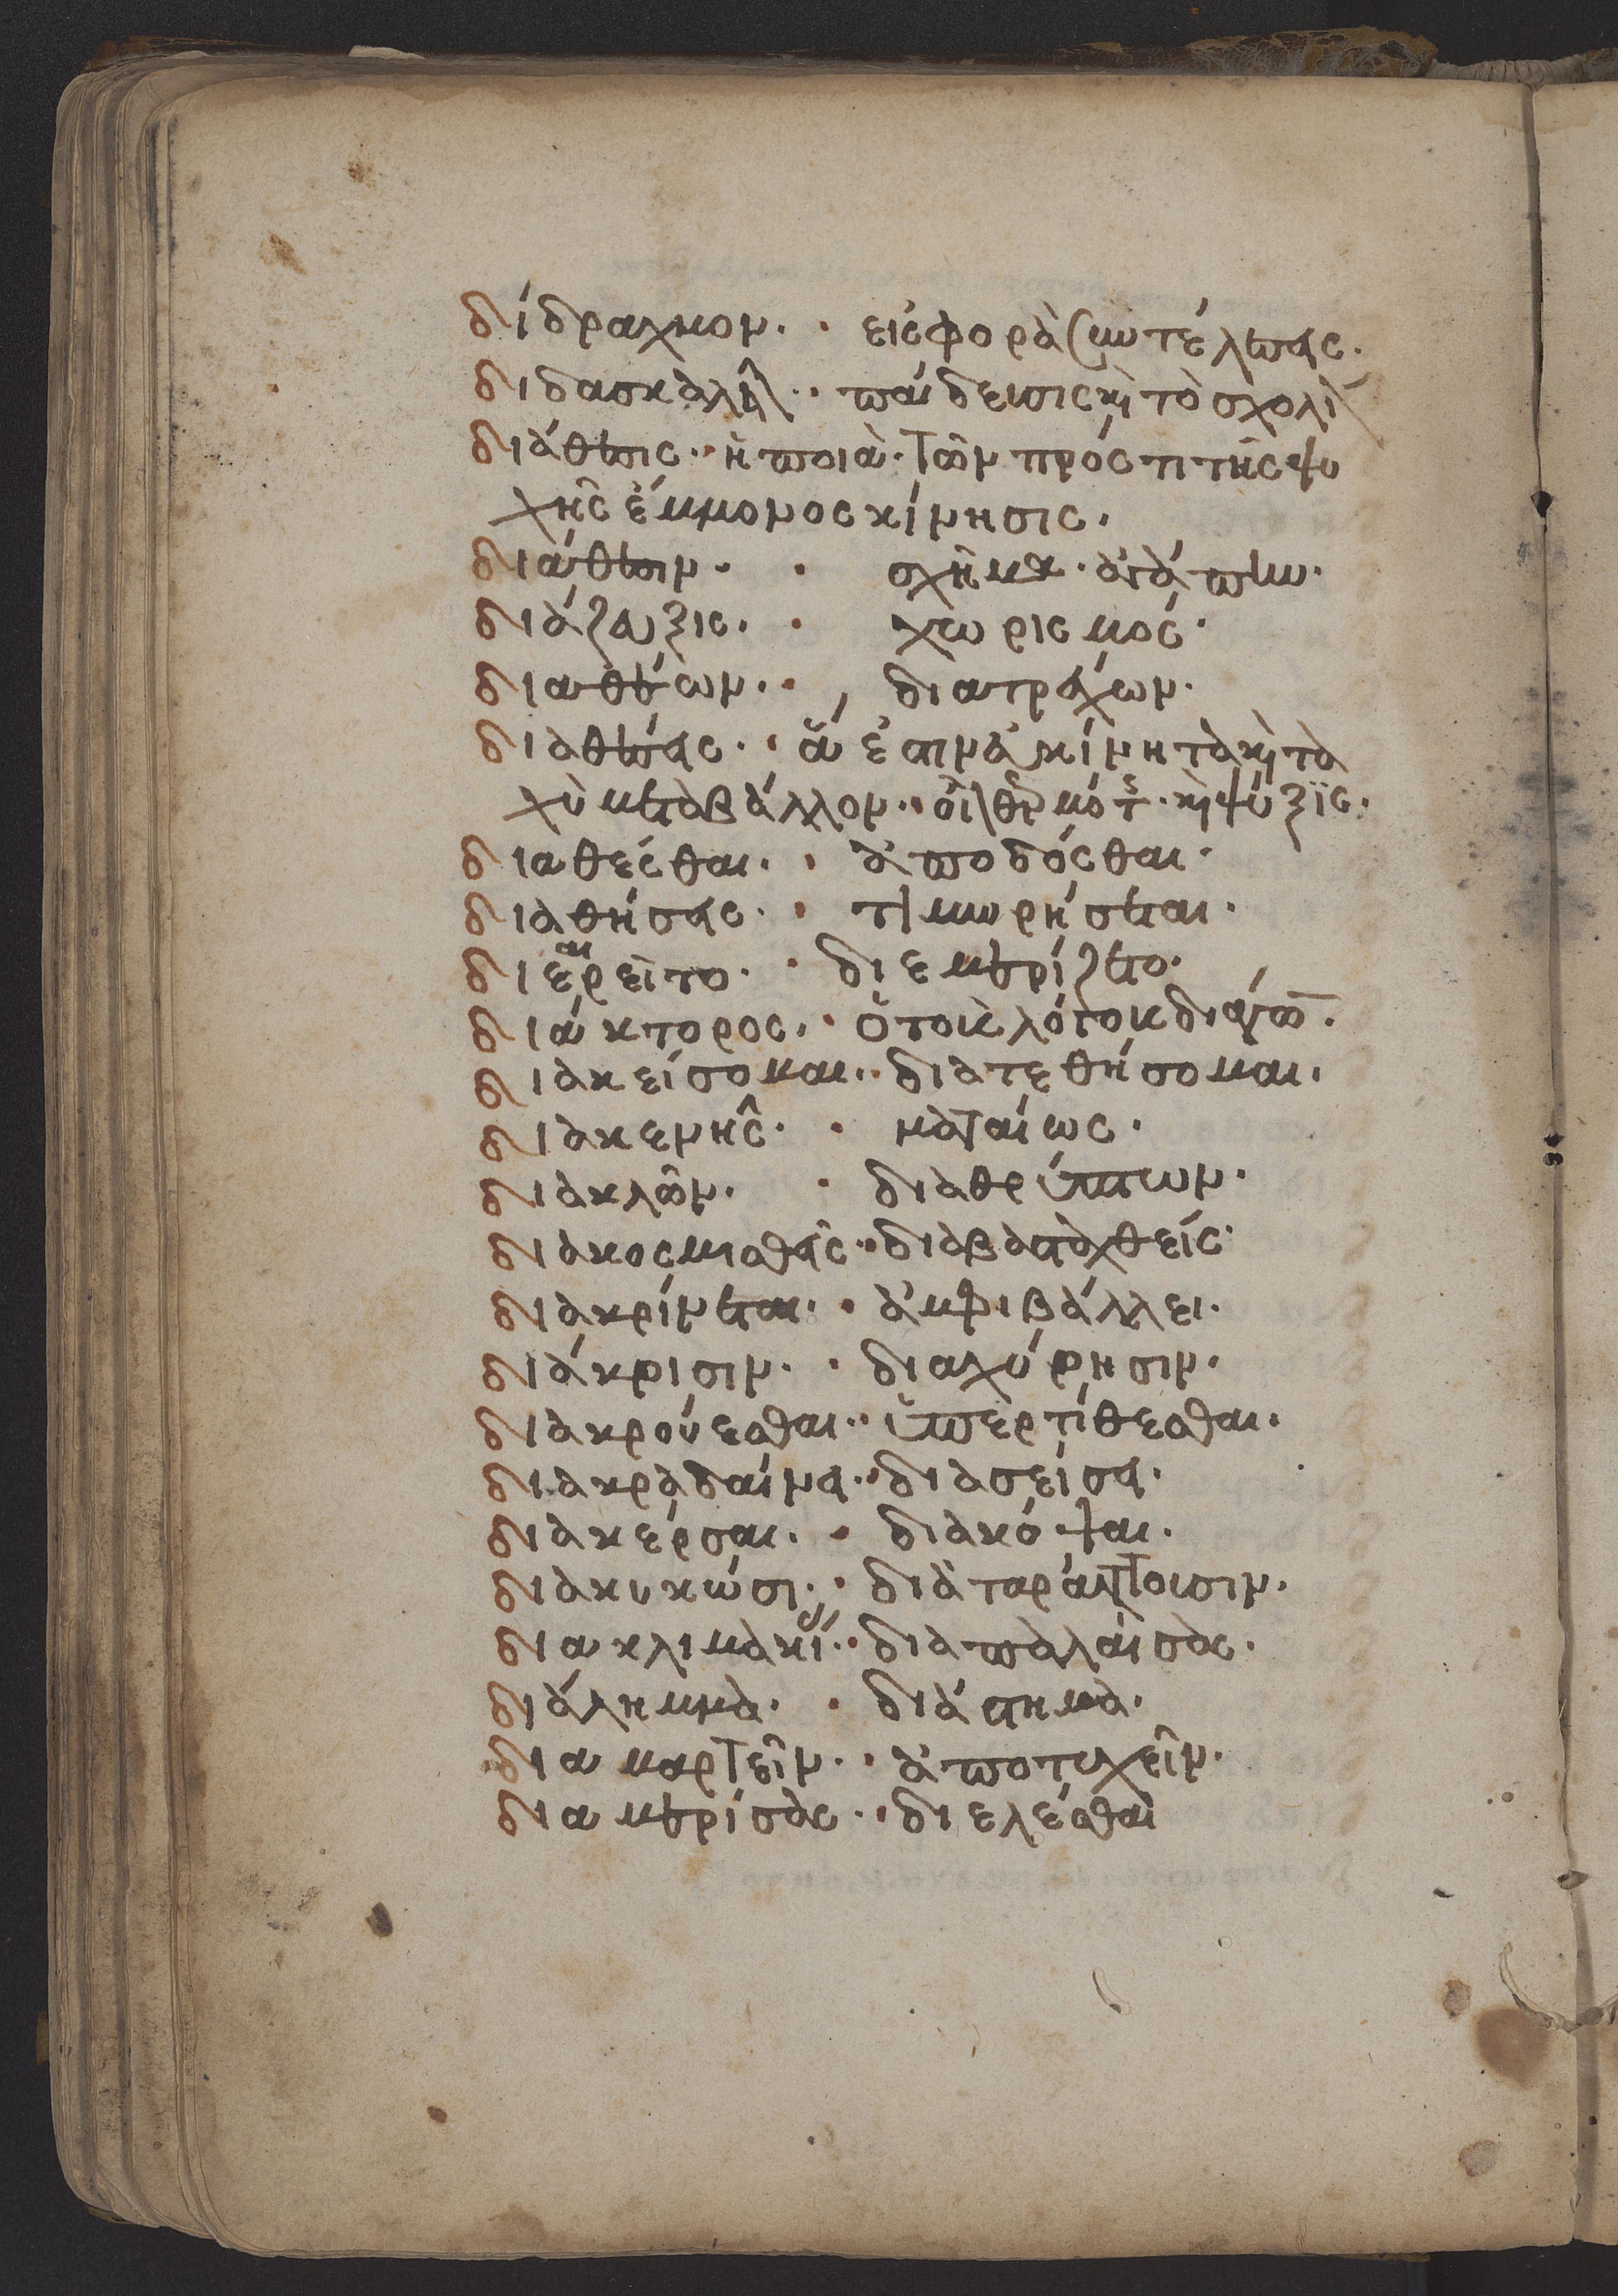 δίδραχμον· εἰσφορὰ συντέλειας·
διδασκαλεῖον· παίδευσις καὶ τὸ σχολεῖον
διάθεσις· ἡ ποιὰ τῶν πρός τι τῆς ψυ
χῆς ἔμμονος κίνησις·
διάθεσιν· σχῆμα· ἀγάπην·
διάζευξις· χωρισμός·
διαθέων· διατρέχων·
διαθέσεις· ἅ ἐστιν ἀκίνητα καὶ τα
χὺ μεταβάλλον· θερμότης καὶ ψύξις·
διαθέσθαι· ἀποδόσθαι·
διαθήσεις· τιμωρήσεται·
διαιρεῖτο· διεμερίζετο·
διάκτορος·
διακείσομαι· διατεθήσομαι·
διακενῆς· ματαίως·
διακλῶν· διαθρύπτων·
διακοσμηθείς· διαβασταχθείς·
διακρίνεται· ἀμφιβάλλει·
διάκρισιν· διαχώρησιν·
διακρούεσθαι· ὑπερτίθεσθαι·
διακραδαίνει· διασείσει·
διακέρσαι· διακόψαι·
διακυκῶσι· διαταράττουσιν·
διακλιμακίσας· διαπαλαίσας·
διάλημμα· διάστημα·
διαμαρτεῖν· ἀποτυχεῖν·
διαμερίσας· διελέσθαι